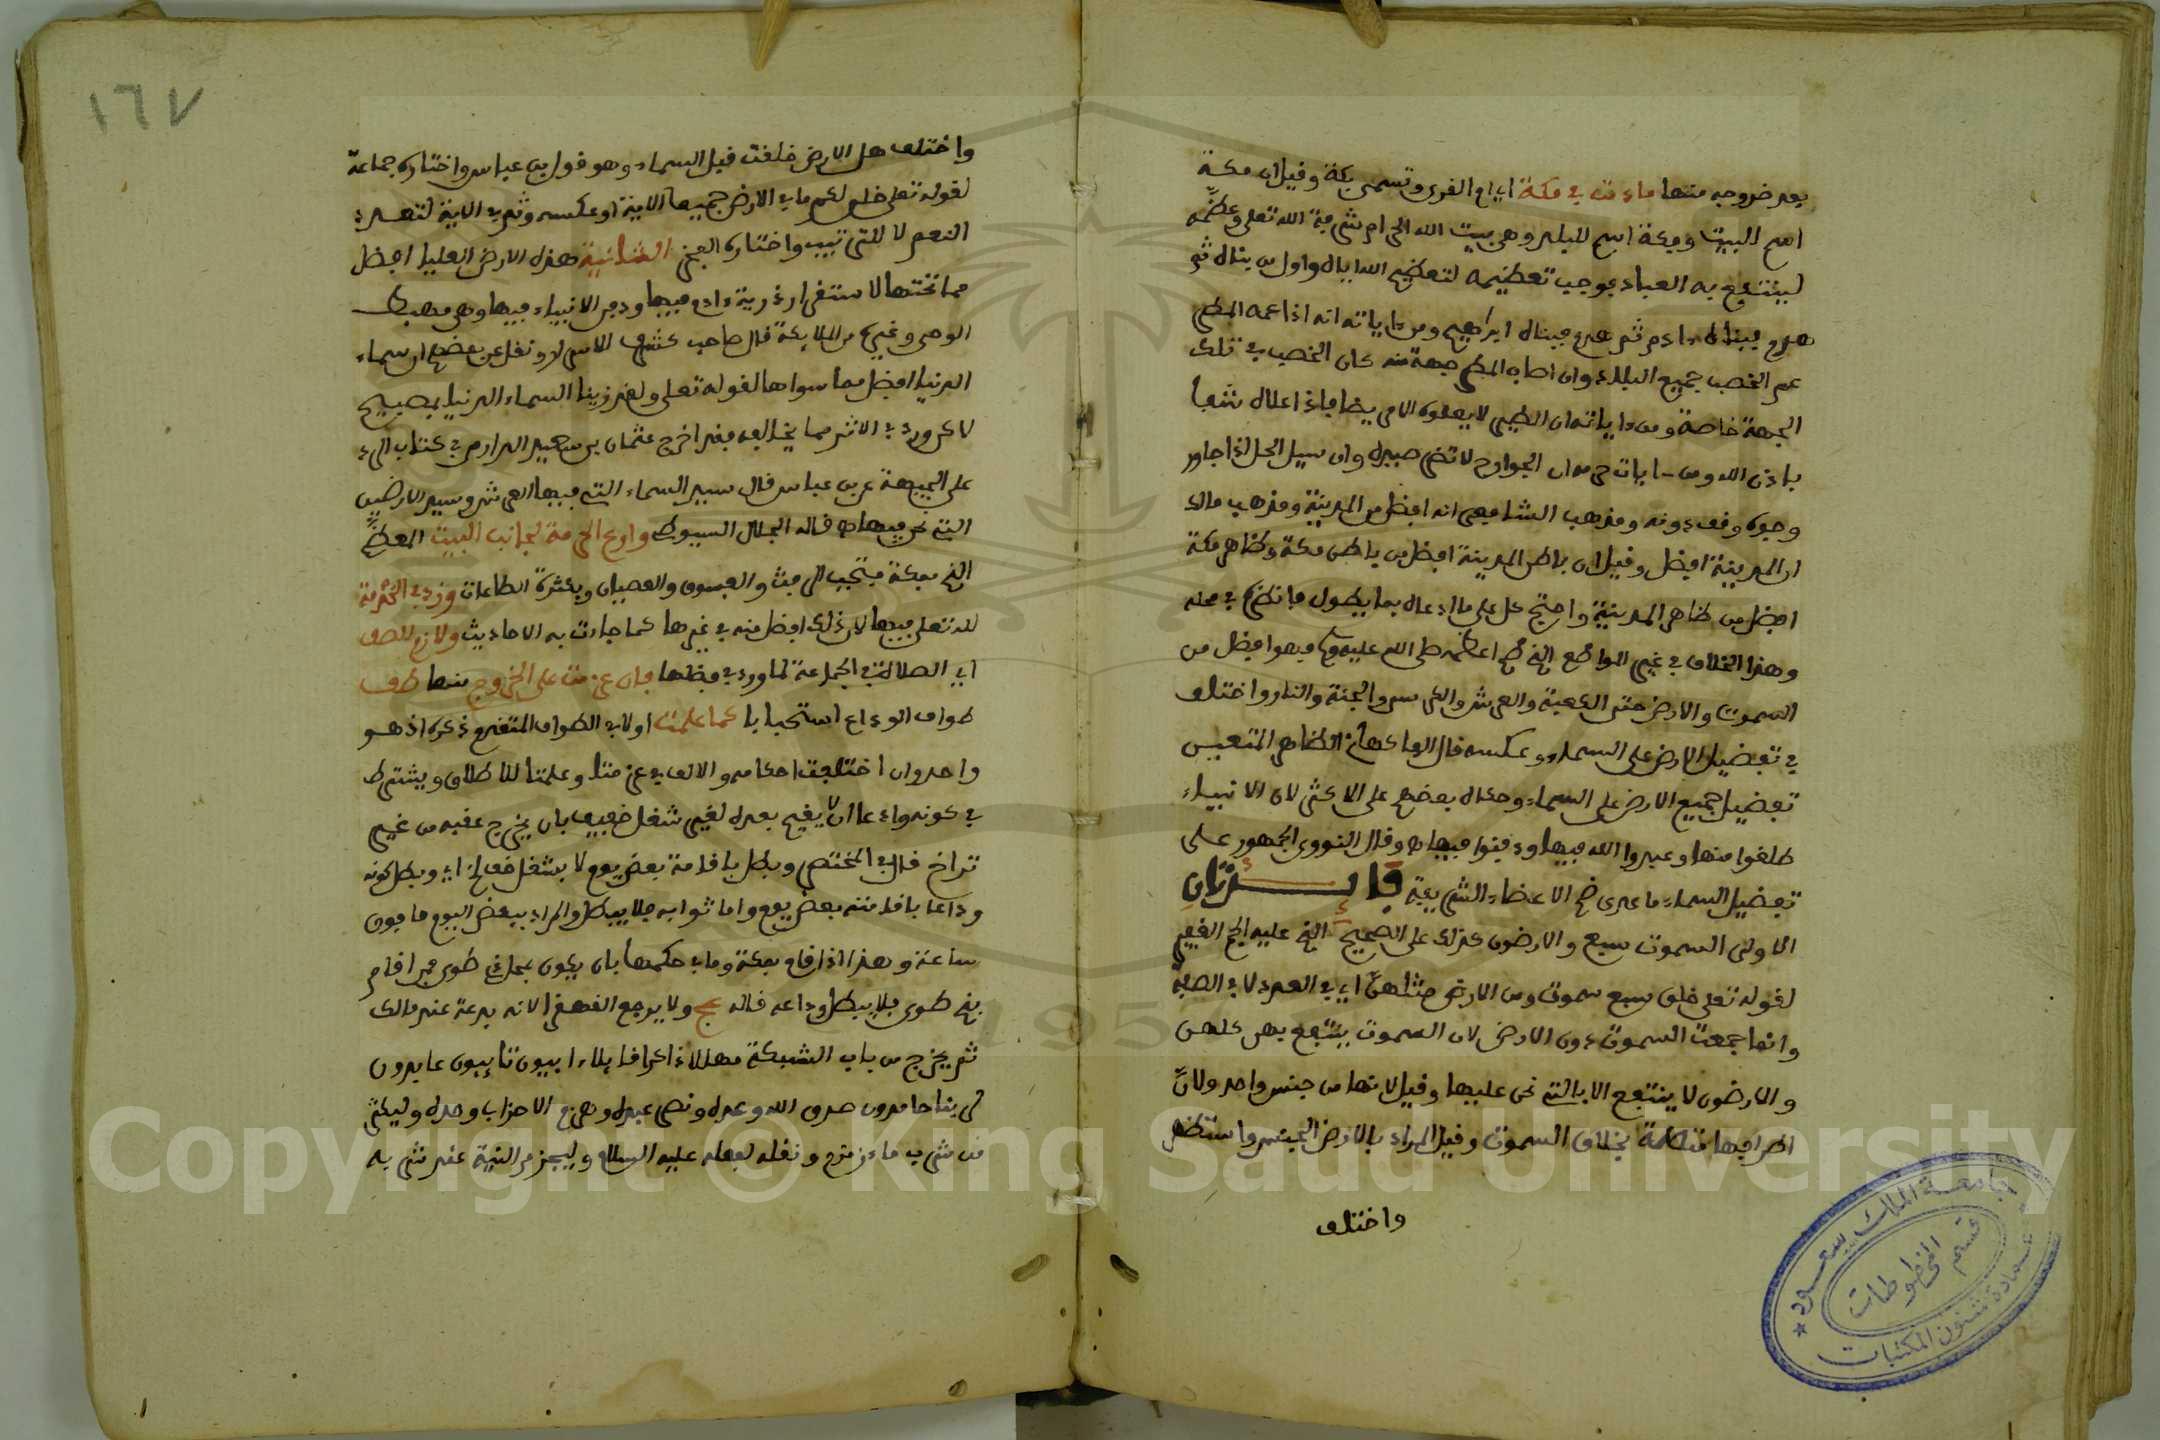 بعد خروجه منها ما دمت في مكة اي ام القرى وتسمى بكة وقيل ان مكة
اسم البيت وبكة اسم للبلد وهي بيت الله الحرام شرفه الله تعلى وعظمه
لينتفع به العباد بوجب تعظيمه لتعظيم الله اياه واول من بناه ثم
هدم فبناه ءادم ثم هدم فبناه ابراهيم ومن ءاياته انه اذا عمه المطر
عم الخصب جميع البلاد وان اصاب المطر جهة منه كان الخصب في تلك
الجهة خاصة ومن ءاياته ان الطير لا يعلوه الا مريضا فاذا علاه شفا
باذن الله ومن ءايات حرمه ان الجوارح لا تضر صيده وان سيل الحل اذا جاور
وجوه وقف دونه ومذهب الشافعي انه افضل من المدينة ومذهب مالك
ان المدينة افضل وقيل ان باطن المدينة افضل من باطن مكة وظاهر مكة
افضل من ظاهر المدينة واحتج كل على ما ادعاه بما يطول فانظره في محله
وهذا الخلاف في غير المواضع التي ضم اعظمه صلى الله عليه وسلم فهو افضل من
السموت والارض حتى الكعبة والعرش والكرسي والجنة والنار واختلف
في تفضيل الارض على السماء وعكسه قال الفاكهاني الظاهر المتعين
تفضيل جميع الارض على السماء وحكاه بعضهم على الاكثر لان الانبياء
خلقوا منها وعبدوا الله فيها ودفنوا فيها ه وقال النووي الجمهور على
تفضيل السماء ما عدى ضم الاعضاء الشريفة فائدتان
الاولى السموت سبع والارضون كذلك على الصحيح الذي عليه الجم الغفير
لقوله تعلى خلق سبع سموت ومن الارض مثلهن اي في العدد لا في الصفة
وانما جمعت السموت دون الارض لان السموت ينتفع بهن كلهن
والارضون لا ينتفع الا بالتي نحن عليها وقيل لانها من جنس واحد ولان
اطرافها متلاصقة بخلاف السموت وقيل المراد بالارض الجنس واستظهر
واختلف
جامعة الملك سعود
عمادة شئون المكتبات
قسم المخطوطات
١٦٧
واختلف هل الارض خلقت قبل السماء وهو قول بن عباس واختاره جماعة
لقوله تعلى خلق لكم ما في الارض جميعا الاية او عكسه وثم في الاية لتعدد
النعم لا للترتيب واختاره الفخر الثانية هذه الارض العليا افضل
مما تحتها لاستقرار ذرية ءادم فيها ودفن الانبياء فيها وهي مهبط
الوحي وغيره من الملايكة قال صاحب كشف الاسرار ونقل عن بعضهم ان سماء
الدنيا افضل مما سواها لقوله تعلى ولقد زينا السماء الدنيا بمصبيح
لا كن ورد في الاثر مما يخالفه فقد اخرج عثمان بن سعيد الدارمي في كتاب الرد
على الجهمة عن بن عباس قال سيد السماء التي فيها العرش وسيد الارضين
التي نحن فيها ه قاله الجلال السيوطي وارع الحرمة لجانب البيت المعظم
الذي بمكة فتجنب الرفث والفسوق والعصيان وبكثرة الطاعات وزد في الخدمة
لله تعلى فيها لان ذلك افضل منه في غيرها كما جاءت به الاحاديث ولازم الصف
اي الصلاة في الجماعة لما ورد في فضلها فان عزمت على الخروج منها طف
طواف الوداع استحبابا كما علمت اولا في الطواف المتقدم ذكره اذ هو
واحد وان اختلفت احكامه والالف في عزمتا وعلمتا للاطلاق ويشترط
في كونه وداعا ان لا يقيم بعده لغير شغل خفيف بان يخرج عقبه من غير
تراخ قال في المختصر وبطل باقامة بعض يوم لا بشغل خف اي وبطل كونه
وداعا باقامته بعض يوم واما ثوابه فلا يبطل والمراد ببعض اليوم ما فوق
ساعة وهذا اذا اقام بمكة وما في حكمها بان يكون بمحل ذي طوى فمن اقام
بذي طوى فلا يبطل وداعه قاله عج ولا يرجع القهقرا لانه بدعة عند مالك
ثم يخرج من باب الشبيكة مهللا ذاكرا قايلا ءايبون تايبون عابدون
لربنا حامدون صدق الله وعده ونصر عبده وهزم الاحزاب وحده وليكثر
من شرب ماء زمزم ونقله لفعله عليه السلام وليجزم النية عند شربه
Copyright © King Saud University
195